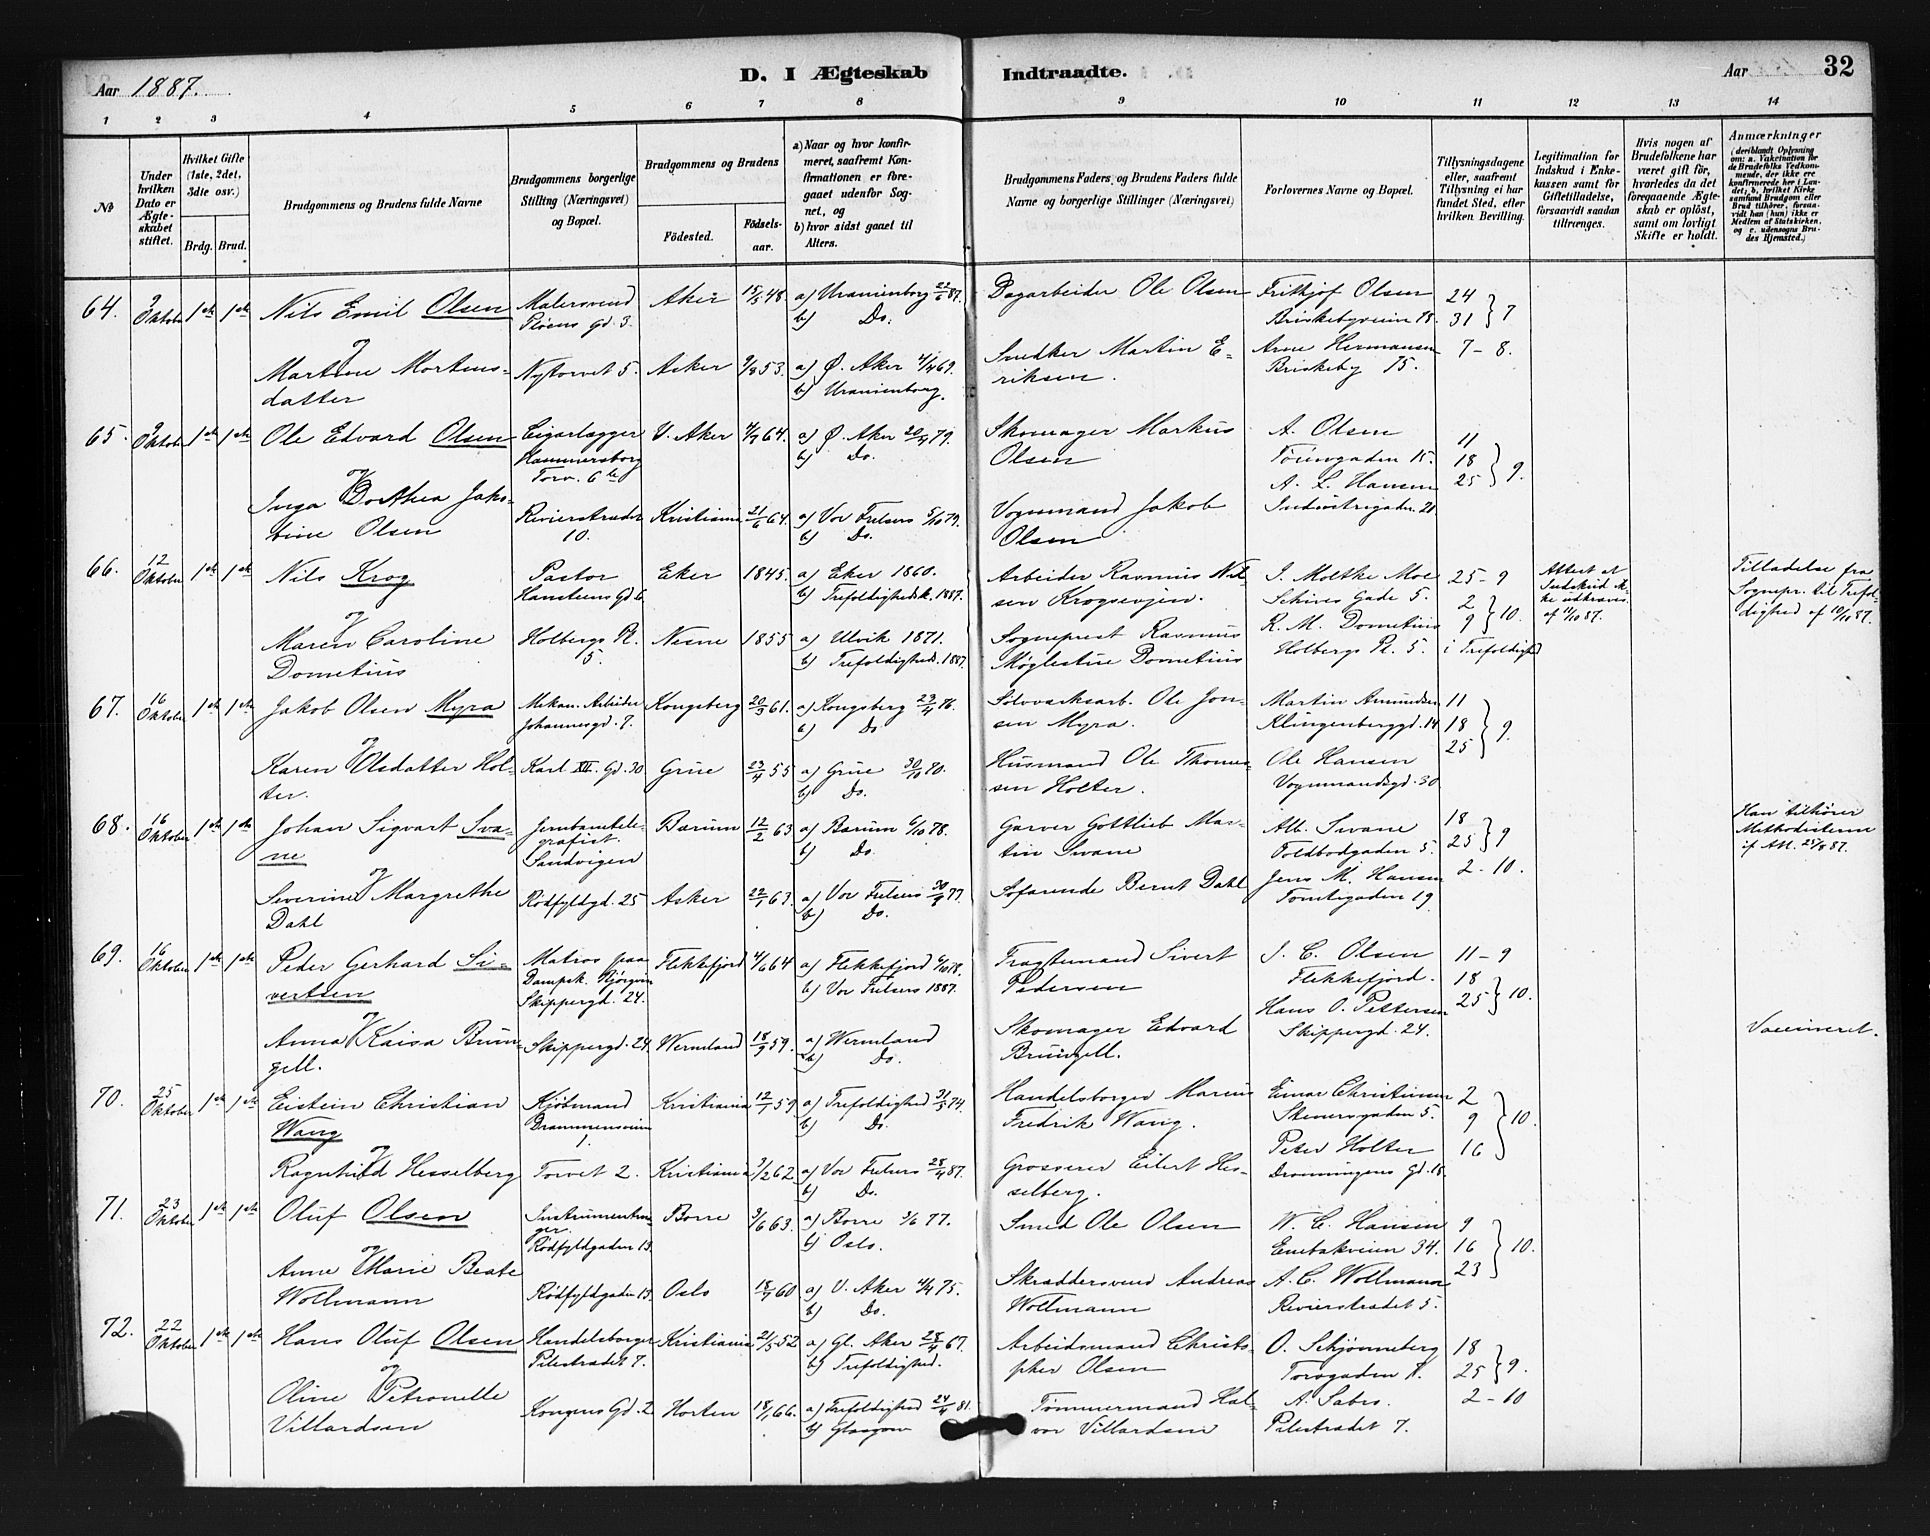 Aar 1887.
D. I Ægteskab Indtraadte.
Aar 32
1 2 3 4 5 6 7 8 9 10 11 12 13 14
№
Under hvilken Dato er Ægteskabet stiftet.
Hvilket Gifte (1ste, 2det, 3die osv.)
Brdg. Brud.
Brudgommens og Brudens fulde Navne
Brudgommens borgerlige Stilling (Næringsvei) og Bopæl.
Brudgommens og Brudens
Födested. Födselsaar.
a) Naar og hvor konfirmeret, saafremt Konfirmationen er foregaaet udenfor Sognet, og
b) hvor sidst gaaet til Alters.
Brudgommens Faders og Brudens Faders fulde Navne og borgerlige Stillinger (Næringsvei)
Forlovernes Navne og Bopæl.
Tillysningsdagene eller, saafremt Tillysning ei har fundet Sted, efter hvilken Bevilling.
Legitimation for Indskud i Enkekassen samt for Giftetilladelse, forsaavidt saadan tiltrænges.
Hvis nogen af Brudefolkene har været gift för, hvorledes da det foregaaende Ægteskab er oplöst, samt om lovligt Skifte er holdt.
Anmærkninger (deriblandt Oplysning om: a. Vakcination for de Brudefolks Vedkommende, der ikke ere konfirmerede her i Landet; b. hvilket Kirkesamfund Brudgom eller Brud tilhörer, forsaavidt han (hun) ikke er Medlem af Statskirken, og c. udensogns Brudes Hjemsted.)
64. 9 Oktober 1ste 1ste Nils Emil Olsen Malersvend Pløens Gd. 3. Aker 15/5 48. a) Uranienborg 22/6 87. b) Do. Dagarbeider Ole Olsen Frithjof Olsen Briskebyveien 18. 24 31 } 7
og Martine Mortensdatter Nytorvet 5. Asker 9/8 53. a) Ø. Aker 4/4 69. b) Uranienborg. Snedker Martin Eriksen. Arne Hermansen Briskeby 15. 7 - 8.
65. 9 Oktober 1ste 1ste Ole Edvard Olsen Cigarlægger Hammersborg Torv. 6 V. Aker 4/7 64. a) Ø. Aker 20/4 79. b) Do. Skomager Markus Olsen A. Olsen 15. 11 18 25 } 9.
og Inga Dorthea Jakobine Olsen Revierstrædet 10. Kristiania 21/6 64. a) Vor Frelsers 5/10 79. b) Do. Vognmand Jakob Olsen A. L. Hansen Industrigaden 20.
66. 12 Oktober 1ste 1ste Nils Krog Pastor Hansteens Gd 6 Eker 1845. a) Eker 1860. b) Trefoldighedsk. 1887. Arbeider Rasmus Nilsen Krogsevjen. J. Moltke Moe Schives Gade 5. 25 - 9 Attest at Indskud ikke udkræves af 11/10 87. Tilladelse fra Sognepr. til Trefoldighed af 10/10 87.
og Maren Caroline Dometius Holbergs Pl. 5. Nesne 1855 a) Ulvik 1871. b) Trefoldigheds. 1887. Sogneprest Rasmus Møglestue Dometius R. M. Dometius Holbergs Pl. 5. 2 9 } 10. i Trefoldighed
67. 16 Oktober 1ste 1ste Jakob Olsen Myra Mekan. Arbeider Johannesgd. 7. Kongsberg 20/3 61. a) Kongsberg 23/4 76. b) Do Sølvverksarb. Ole Jonsen Myra. Martin Amundsen Klingenberggd. 14 11 18 25 } 9.
og Karen Olsdatter Holter. Karl XII. Gd. 30 Grue 23/4 55 a) Grue 30/10 70. b) Do. Husmand Ole Thomesen Holter. Ole Hansen Vognmandsgd. 30
68. 16 Oktober 1ste 1ste Johan Sigvart Svane Jernbanetelegrafist. Sandvigen Bærum 12/2 63 a) Bærum 6/10 78. b) Do. Garver Gottlieb Martin Svane Alb. Svane Toldbodgaden 5. 18 25 } 9 Han tilhører Methodisterne
og Severine Margrethe Dahl Rødfyldgd. 25 Asker 22/1 63. a) Vor Frelsers 30/9 77. b) Do. Søfarende Bernt Dahl Jens M. Hansen Tomtegaden 19. 2 - 10.
69. 16 Oktober 1ste 1ste Peder Gerhard Sivertsen Matros paa Dampsk. Bjørgvin Skippergd. 24. Flekkefjord 4/6 64 a) Flekkefjord 6/10 78. b) Vor Frelsers 1887. Fragtemand Sivert Pedersen J. C. Olsen Flekkefjord. 11 - 9 18 25 } 10.
og Anna Kaisa Brungell. Skippergd. 24 Wermland 18/9 59. a) Wermland b) Do. Skomager Edvard Brungell. Hans O. Pettersen Skippergd. 24. Vaccineret.
70. 25 Oktober 1ste 1ste Eistein Christian Wang Kjøbmand Drammensveien 1. Kristiania 12/7 59 a) Trefoldighed 31/5 74. b) Do. Handelsborger Marius Fredrik Wang. Einar Christiansen Skovveigaden 5. 2 9 16 } 10.
og Ragnhild Hesselberg Torvet 2. Kristiania 3/2 62 a) Vor Frelsers 28/4 87. b) Do. Grosserer Eilert Hesselberg. Peter Holter Dronningens Gd. 18.
71. 23 Oktober 1ste 1ste Oluf Olsen Rødfyldgaden 13. Borre 3/6 63. a) Borre 3/6 77. b) Oslo. Smed Ole Olsen W. C. Hansen Enebakveien 34. 9 16 23 } 10.
og Anne Marie Beate Wollmann Rødfyldgaden 13. Oslo 18/7 60 a) V. Aker 4/4 75. b) Do. Skræddersvend Andreas Wollmann A. C. Wollmann Revierstrædet 5.
72. 22 Oktober 1ste 1ste Hans Oluf Olsen Handelsborger Pilestrædet 7. Kristiania 21/5 52 a) Gl. Aker 28/4 67. b) Trefoldighed. Arbeidsmand Christopher Olsen O. Schjønneberg Torvgaden 18 25 } 9.
og Oline Petronelle Villardsen Kongens Gd. 2 Horten 18/1 66. a) Trefoldighed 24/4 81. b) Glasgow Tømmermand Halvor Villardsen A. Sabro. Pilestrædet 7. 2 - 10